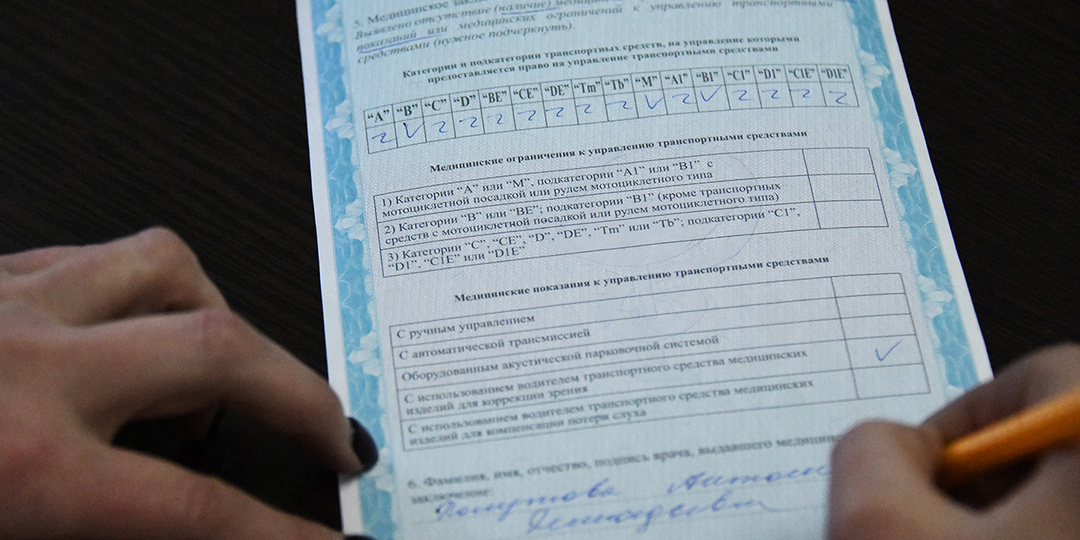 5. Медицинское
Выявлено отсутствие (наличие)
показаний или медицинских ограничений к управлению транспортными
средствами (нужное подчеркнуть).
Категории и подкатегории транспортных средств, на управление которыми
предоставляется право на управление транспортными средствами
“A” “B” “C” “D” “BE” “CE” “DE” “Tm” “Tb” “M” “A1” “B1” “C1” “D1” “C1E” “D1E”
Z V Z Z Z Z Z Z Z V Z V Z Z Z Z
Медицинские ограничения к управлению транспортными средствами
1) Категории “A” или “M”, подкатегории “A1” или “B1” с
мотоциклетной посадкой или рулем мотоциклетного типа
2) Категории “B” или “BE”; подкатегории “B1” (кроме транспортных
средств с мотоциклетной посадкой или рулем мотоциклетного типа)
3) Категории “C”, “CE”, “D”, “DE”, “Tm” или “Tb”; подкатегории “C1”,
“D1”, “C1E” или “D1E”
Медицинские показания к управлению транспортными средствами
С ручным управлением
С автоматической трансмиссией
Оборудованным акустической парковочной системой
С использованием водителем транспортного средства медицинских
изделий для коррекции зрения
С использованием водителем транспортного средства медицинских
изделий для компенсации потери слуха
6. Фамилия, имя, отчество, подпись врача, выдавшего
заключение: